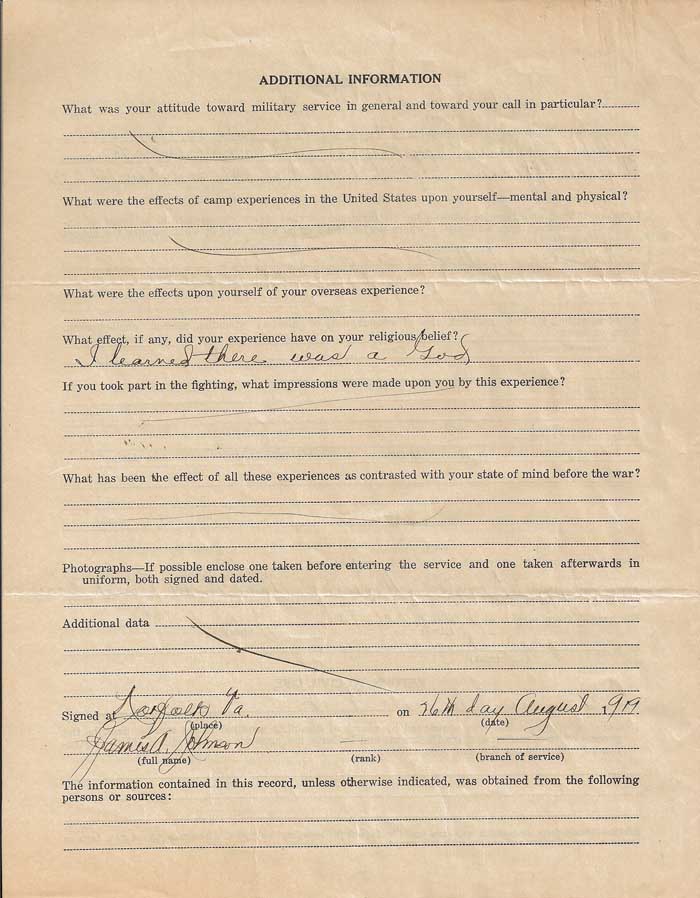 ADDITIONAL INFORMATION
What was your attitude toward military service in general and toward your call in particular?
What were the effects of camp experiences in the United States upon yourself—mental and physical?
What were the effects upon yourself of your overseas experience?
What effect, if any, did your experience have on your religious belief?
I learned there was a God
If you took part in the fighting, what impressions were made upon you by this experience?
What has been the effect of all these experiences as contrasted with your state of mind before the war?
Photographs—If possible enclose one taken before entering the service and one taken afterwards in
uniform, both signed and dated.
Additional data
Signed at Norfolk Va. on 26th day August 1919
(place) (date)
James A. Johnson
(full name) (rank) (branch of service)
The information contained in this record, unless otherwise indicated, was obtained from the following
persons or sources: